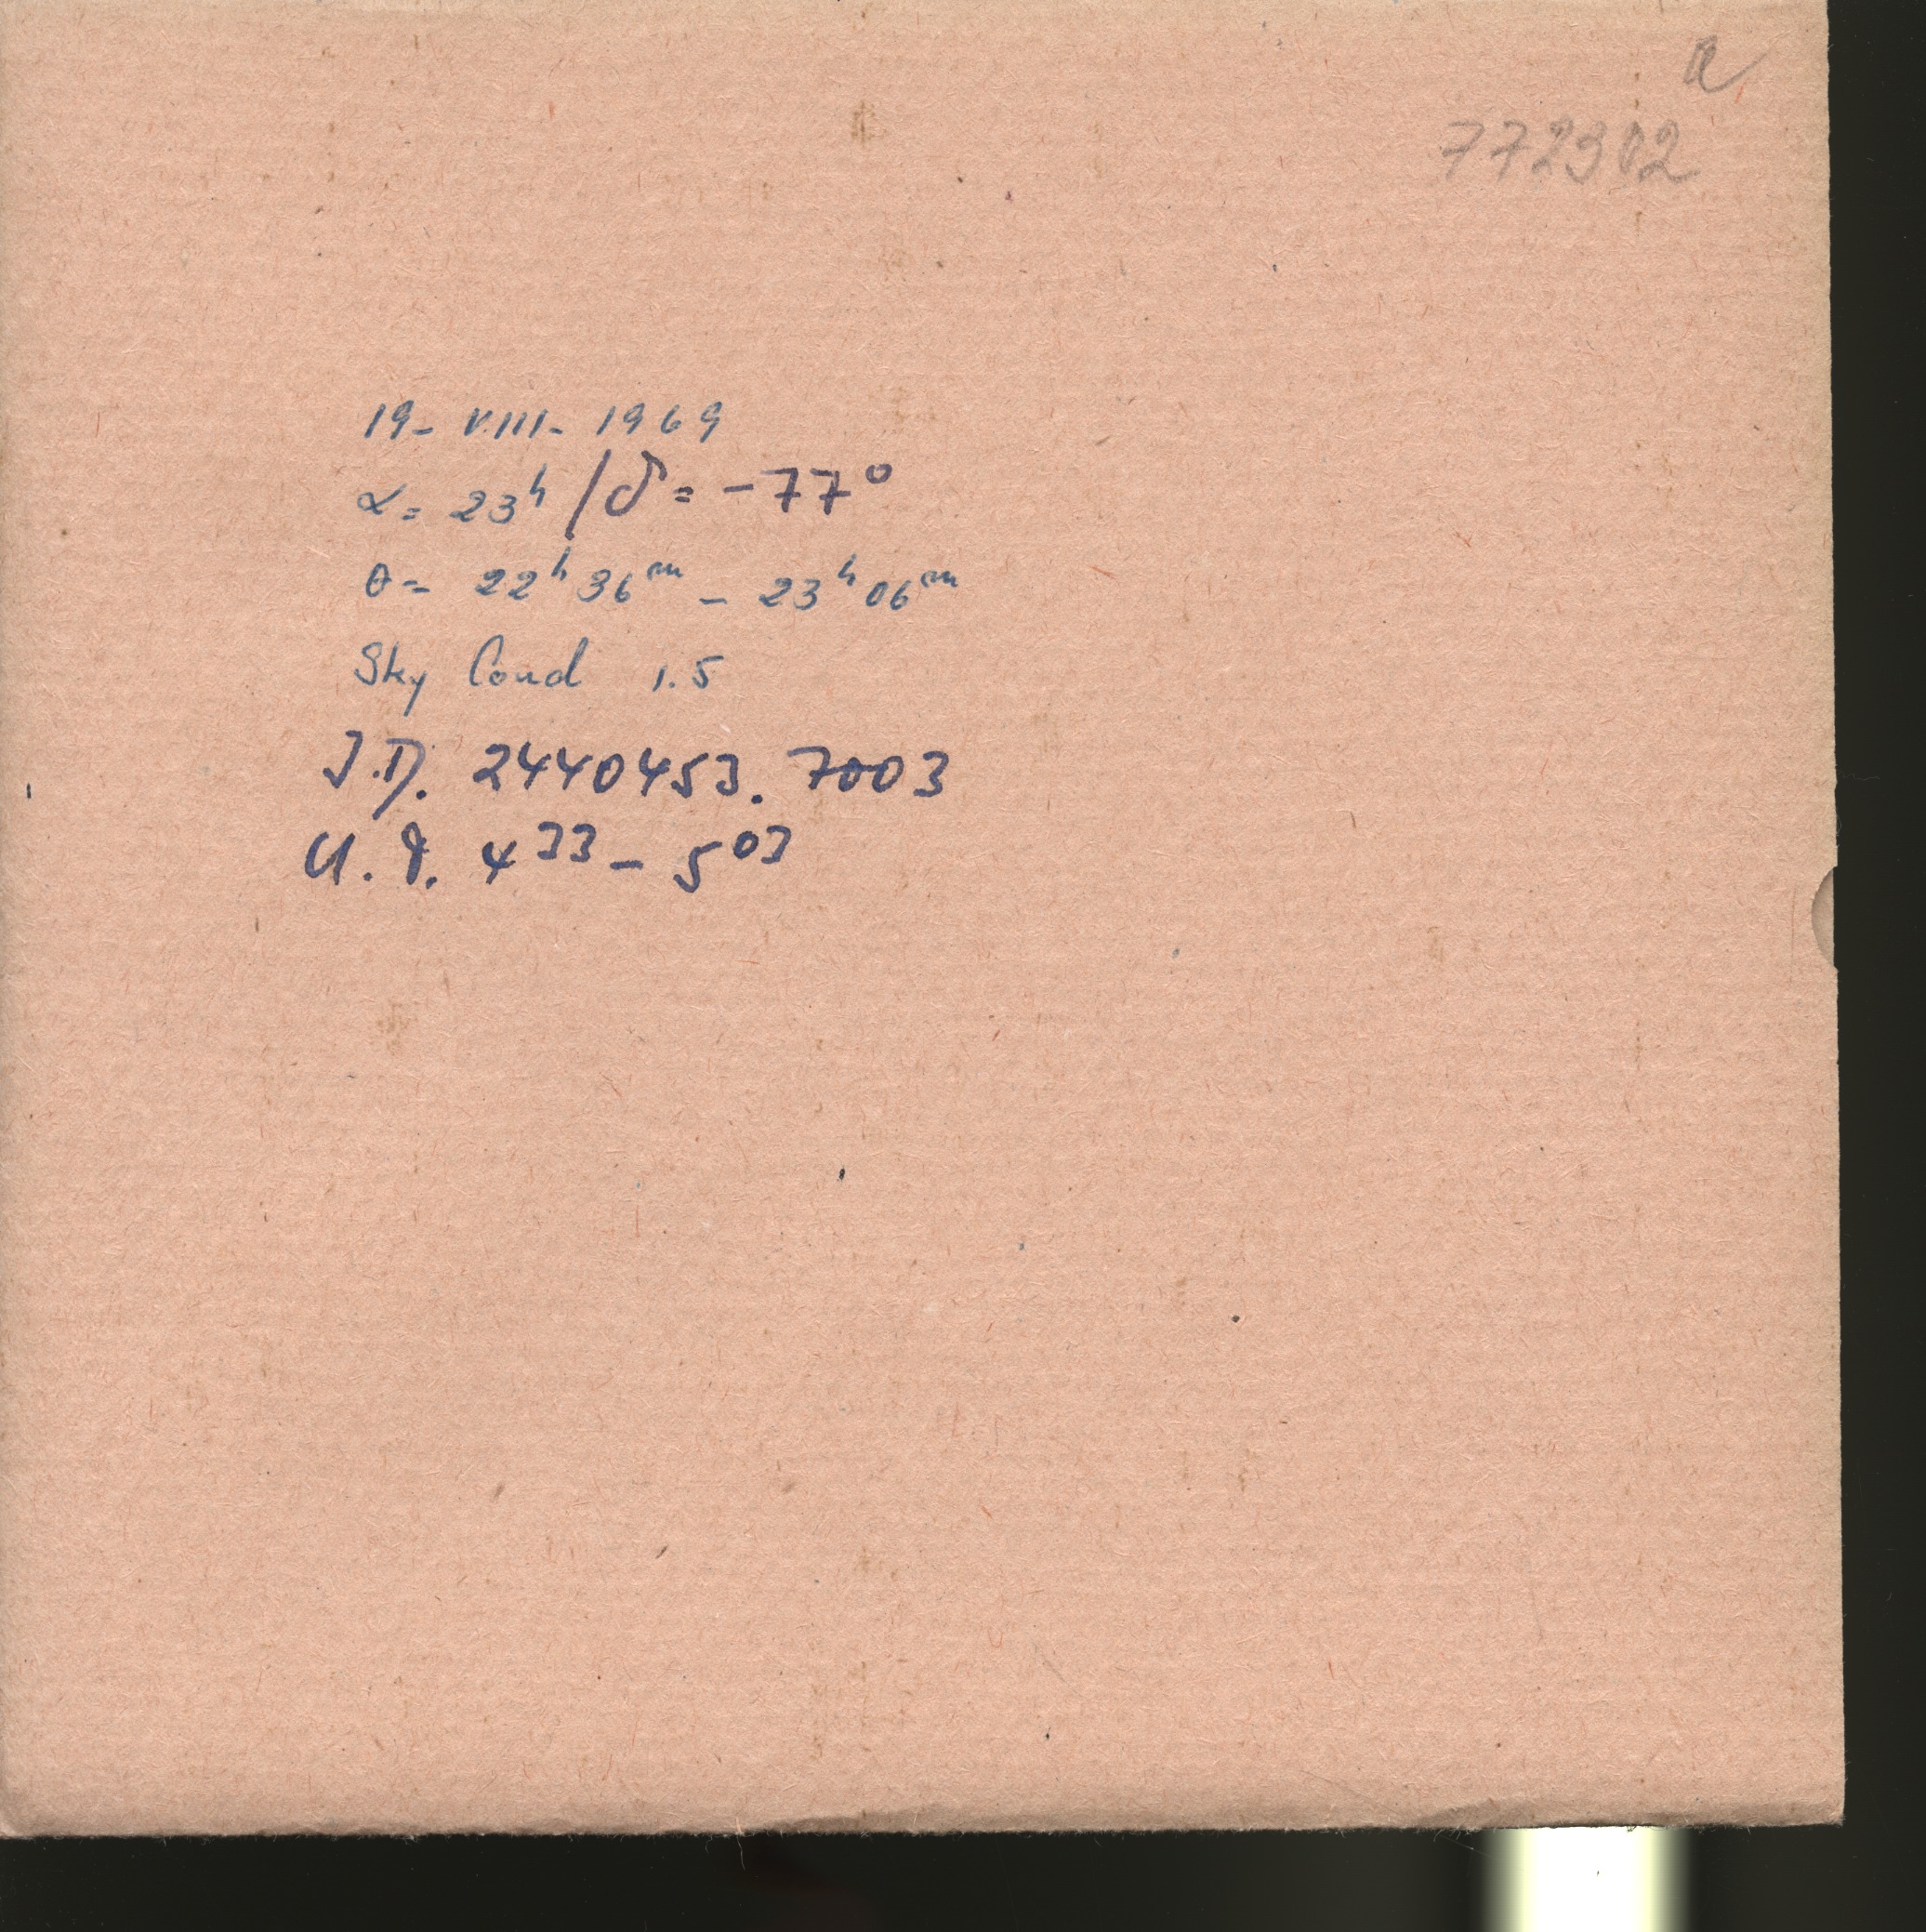 R
772302
19- VIII- 1969
α= 23ʰ / δ= -77°
θ= 22ʰ 36ᵐ - 23ʰ 06ᵐ
Sky Cond 1.5
J.D. 2440453.7003
U.T. 4³³ - 5⁰³